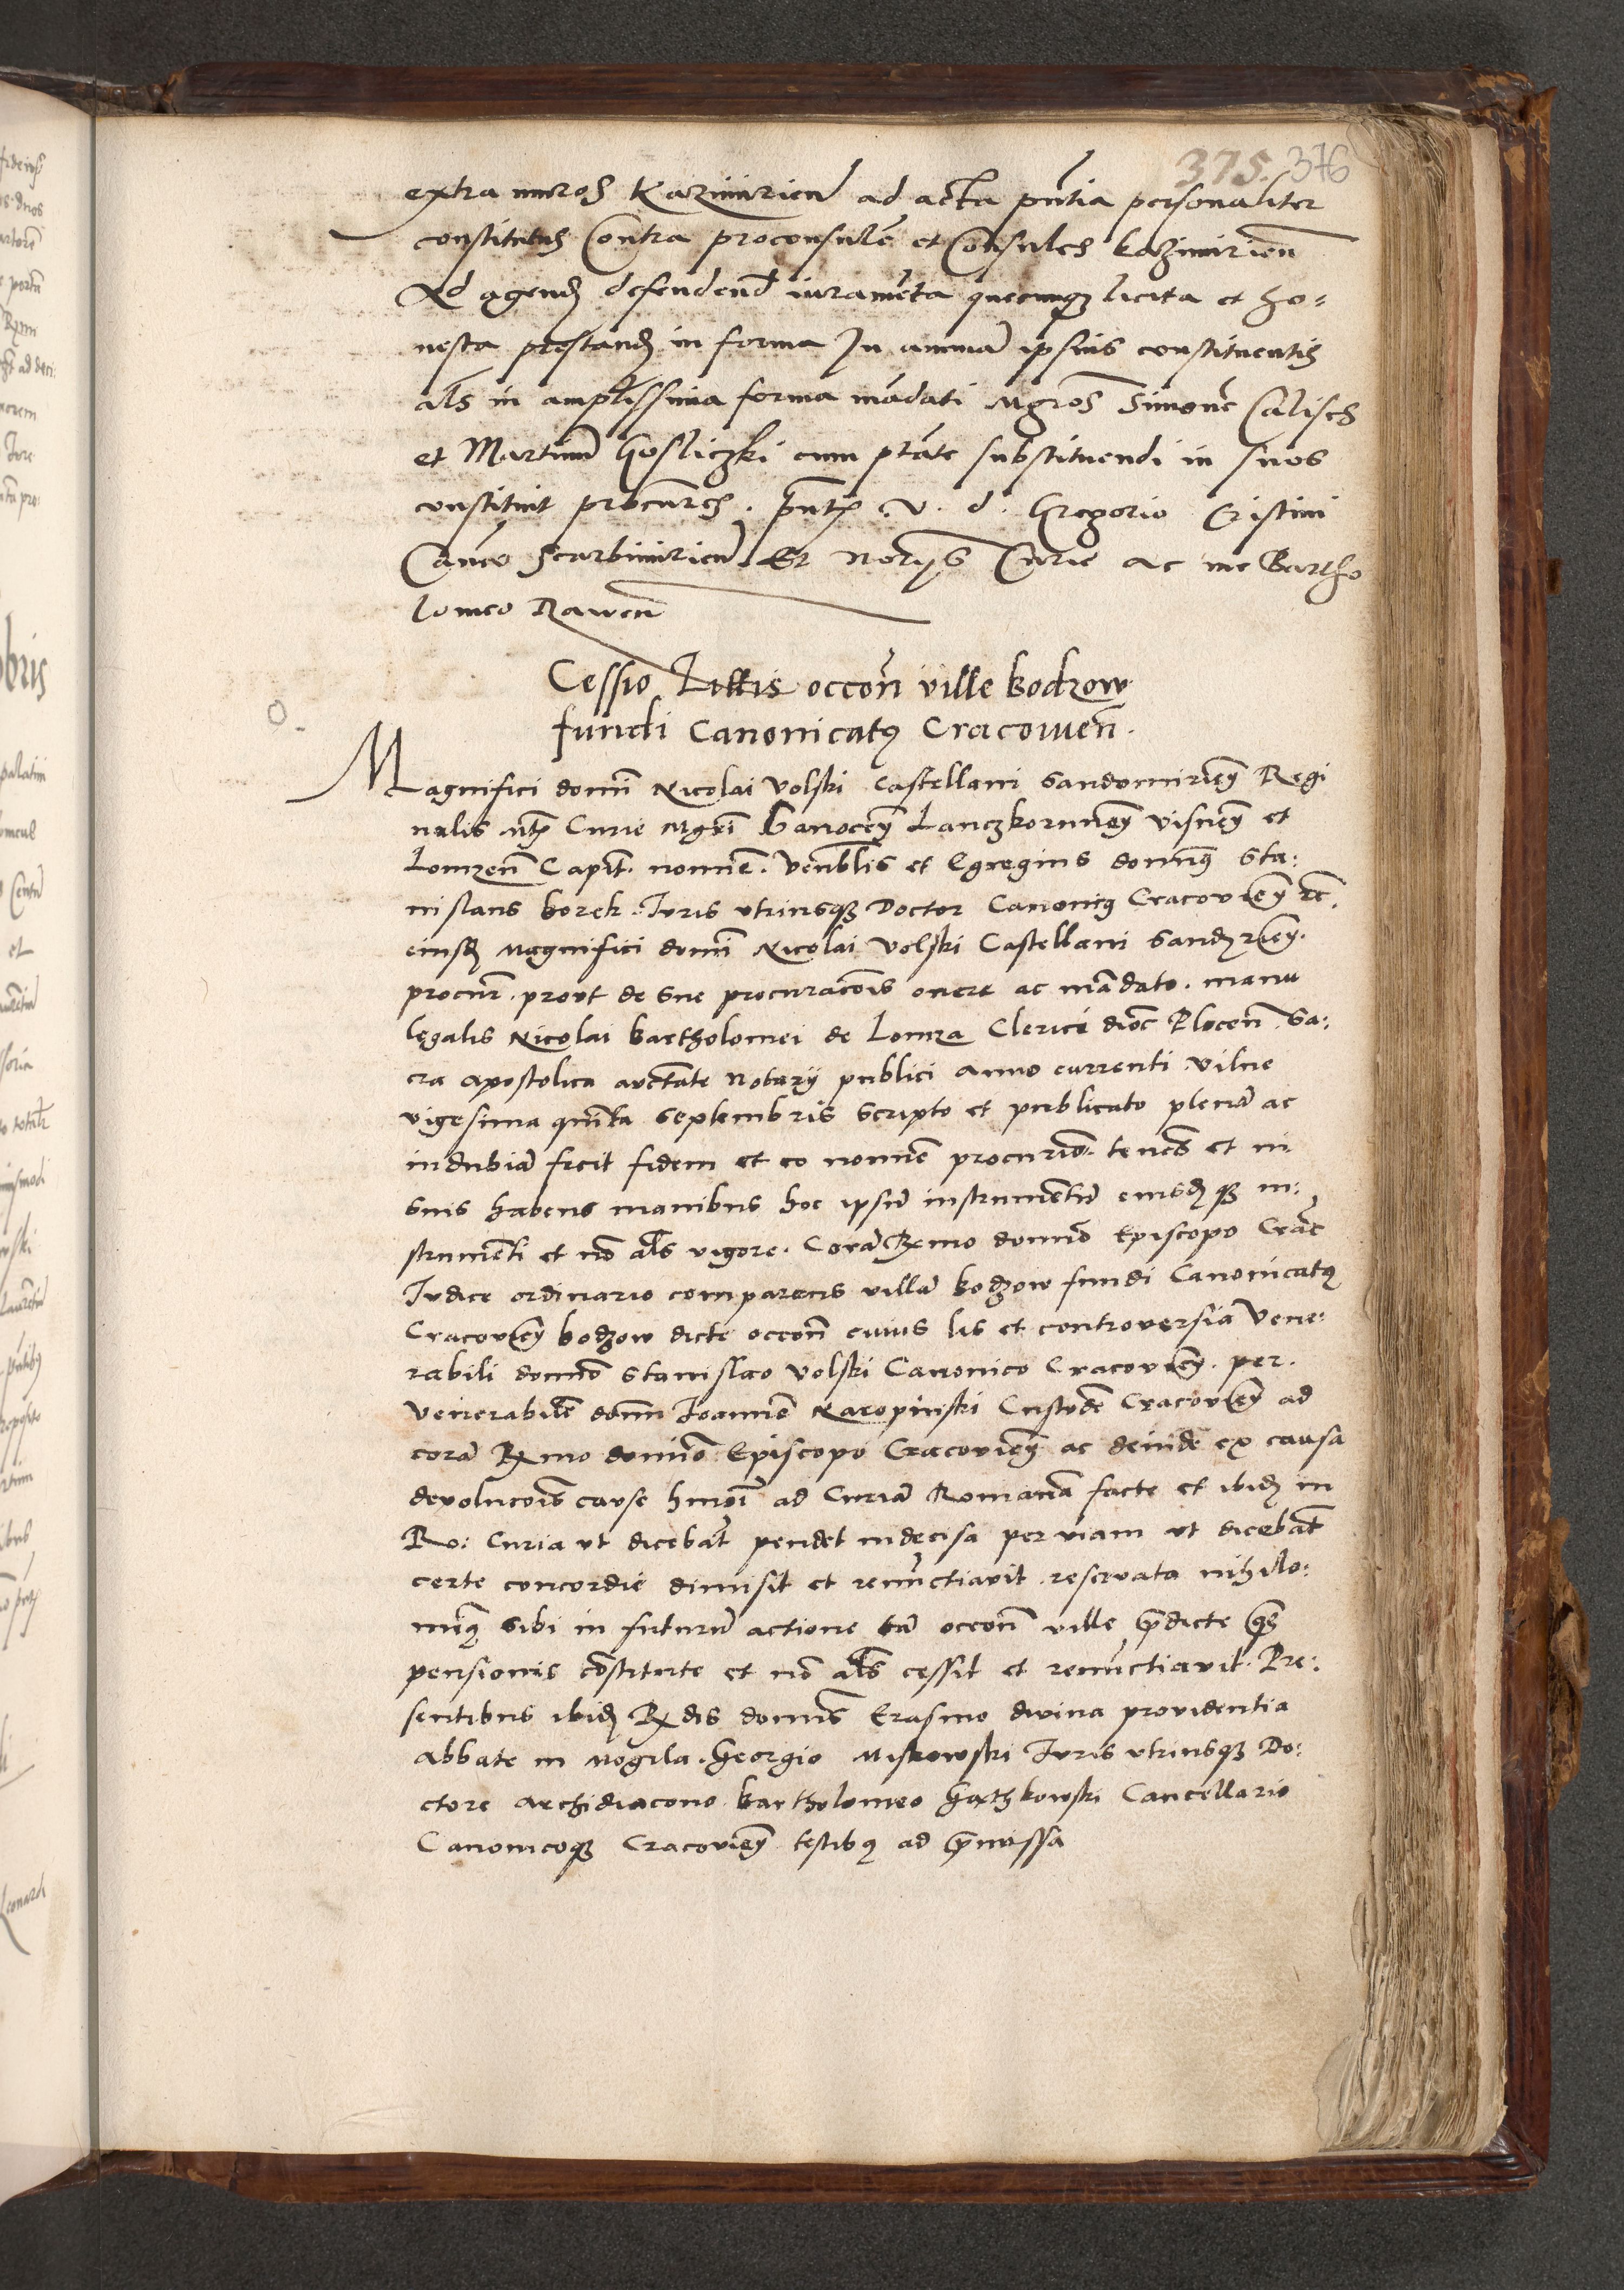 375. 376
extra muros Kazimirien ad acta pñtia personaliter
constitutus Contra proconsulē et Consules kazimirien
Ad agend defendend iuramēta quecunqz licita et ho:
nesta prestand in forma In animā ipsius constituentis
als in amplissima forma mādati Mgros Simonē Calisch
et Martinū Gosliczki cum ptāte substituendi in suos
constituit procures. pñtꝭ. v. d. Gregorio Cristini
Canco Scarbimirien Et Notrijs Curie ac me Bartho
lomeo Rawen
Cessio Littis occōn ville bodzow
fundi Canonicatꝰ Cracowen̄.
Magnifici domni Nicolai Volski Castellani Sandomirien Regi
nalis Mtꝭ Curie Mgri Sanocen Lanczkorunen Visnen et
Lomzen Capit. nomine. Venblis et Egregius domnus Sta:
nislaus borek. Iuris vtriusqz Doctor Canonicꝰ Cracovien etc.
eiusd Magnifici domni Nicolai Volski Castellani Sandzrien.
procur. prout de sue procuracōis onere ac mādato. manu
legalis Nicolai bartholomei de Lomza Clerici dioc Plocen. Sa:
cra apostolica auctate Notarij publici anno currenti Vilne
vigesima quinta Septembris scripto et publicato plenā ac
indubiā fecit fidem et eo nomine procurio. tenens et in
suis habens manibus hoc ipsū instrumentū eiusdqz in:
strumenti et nō als vigore. Corā Rxmo domno Episcopo Crac
Iudice ordinario comparens villā bodzow fundi Canonicatꝰ
Cracovien bodzow dicte occōn cuius lis et controversia Vene:
rabili domno Stanislao Volski Canonico Cracovien. per.
Venerabilē domn Ioannē Karopinski Custodē Cracovien ad
corā Rxmo domno Episcopo Cracovien ac deinde ex causa
devolucōis cause hmōi ad Curiā Romanā facte et ibid in
Ro: Curia vt dicebat pendet indecisa per viam vt dicebat
certe concordie dimisit et renūctiavit. reservata nihilo:
minꝰ sibi in futurū actione tā occōn ville p̄dicte q̄
pensionis cōstitute et nō als cessit et renūctiavit. Pre:
sentibus ibid Rxdis domnis Erasmo divina providentia
Abbate in Mogila. Georgio Miskowski Iuris vtriusqz Do:
ctore archidiacono. bartholomeo Ganthkowski Cancellario
Canonicoqz Cracovien testibꝰ ad p̄missa